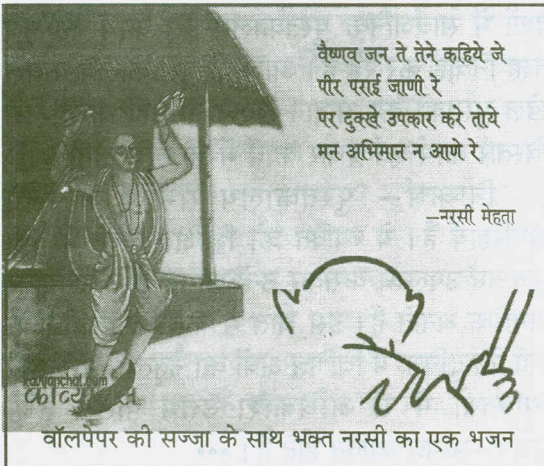 वैष्णव जन ते तेने कहिये जे
पीर पराई जाणी रे
पर दुक्खे उपकार करे तोये
मन अभिमान न आणे रे
–नरसी मेहता
kavyanchal.com
वॉलपेपर की सज्जा के साथ भक्त नरसी का एक भजन